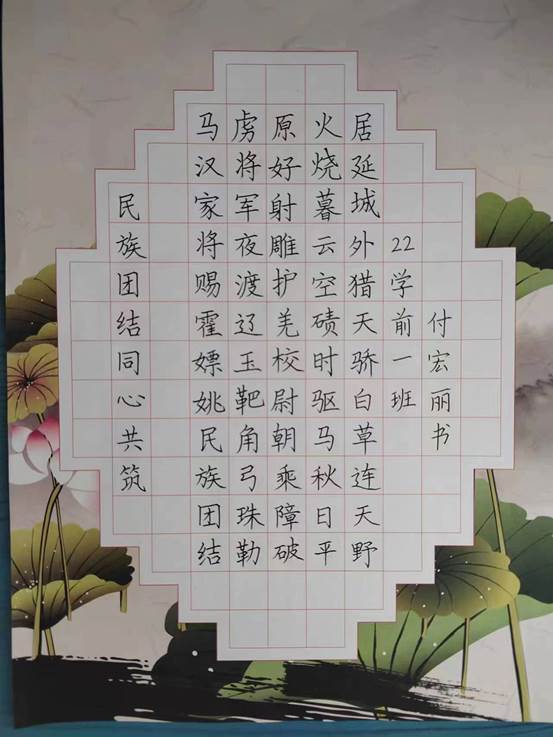 付宏丽书
22学前一班
居延城外猎天骄白草连天野
火烧暮云空碛时驱马秋日平
原好射雕护羌校尉朝乘障破
虏将军夜渡辽玉靶角弓珠勒
马汉家将赐霍嫖姚民族团结
民族团结同心共筑